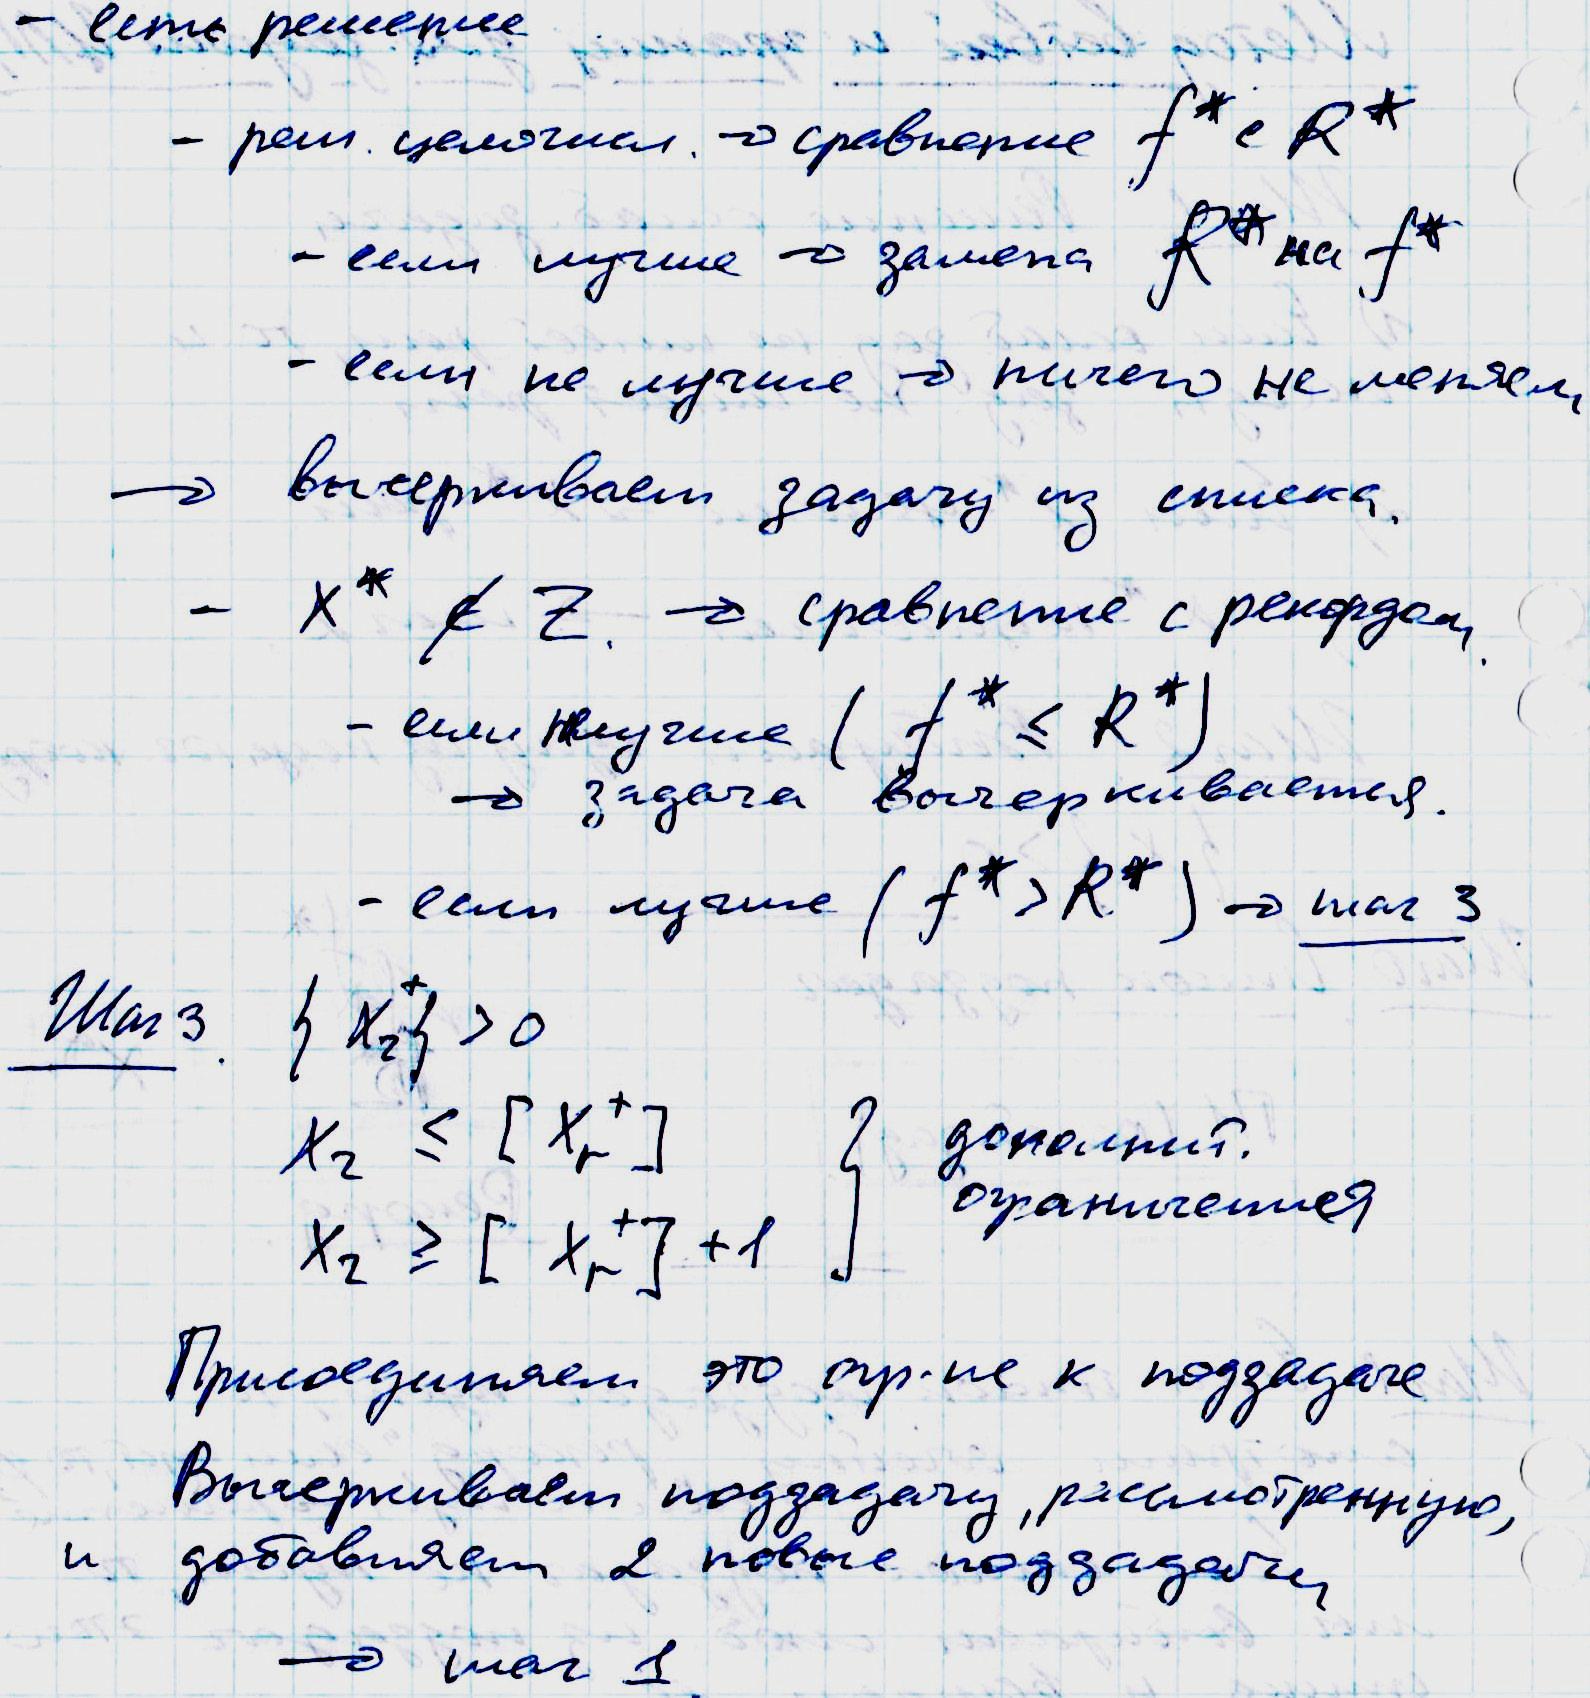 - есть решение
- реш. целочисл. → сравнение f* с R*
- если лучше → замена R* на f*
- если не лучше → ничего не меняем
→ вычеркиваем задачу из списка.
- X* ∉ Z. → сравнение с рекордом.
- если не лучше ( f* ≤ R* )
→ задача вычеркивается.
- если лучше ( f* > R* ) → шаг 3.
Шаг 3. { X_r^+ } > 0
X_r ≤ [ X_r^+ ] } дополнит.
X_r ≥ [ X_r^+ ] + 1 ограничения
Присоединяем это огр-ие к подзадаче
Вычеркиваем подзадачу, рассмотренную,
и добавляем 2 новые подзадачи
→ шаг 1